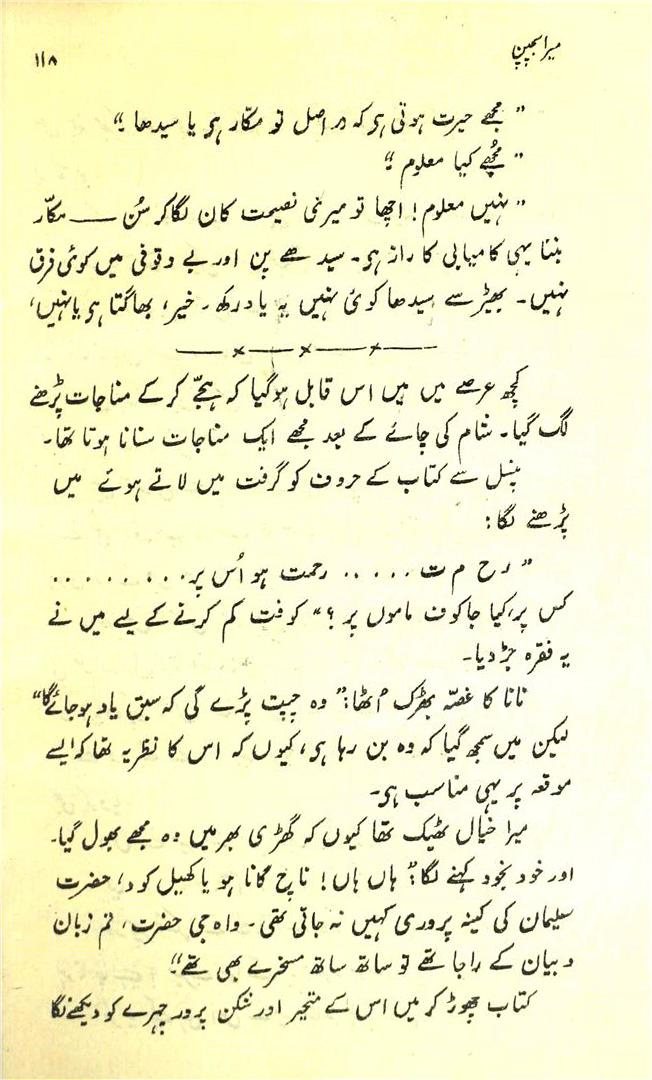 میرا بچپن
۱۱۸
” مجھے حیرت ہوتی ہو کہ در اصل تو مکّار ہو یا سیدھا۔“
” مُجھے کیا معلوم۔“
” نہیں معلوم! اچھا تو میری نصیحت کان لگا کر سُن —— مکّار
بننا یہی کامیابی کا راز ہو۔ سیدھے پن اور بے وقوفی میں کوئی فرق
نہیں۔ بھیڑ سے سیدھا کوئی نہیں یہ یاد رکھ۔ خیر، بھاگتا ہو یا نہیں،
کچھ عرصے میں میں اس قابل ہوگیا کہ ہجّے کر کے مناجات پڑھنے
لگ گیا۔ شام کی چائے کے بعد مجھے ایک مناجات سنانا ہوتا تھا۔
پنسل سے کتاب کے حروف کو گرفت میں لاتے ہوئے میں
پڑھنے لگا:
” ر ح م ت ..... رحمت ہو اُس پر.........
کس پر، کیا جاکوف ماموں پر ؟“ کوفت کم کرنے کے لیے میں نے
یہ فقرہ جڑ دیا۔
نانا کا غصّہ بھڑک اُٹھا:” وہ چپت پڑے گی کہ سبق یاد ہو جائے گا“
لیکن میں سمجھ گیا کہ وہ بن رہا ہو، کیوں کہ اس کا نظریہ تھا کہ ایسے
موقعہ پر یہی مناسب ہو۔
میرا خیال ٹھیک تھا کیوں کہ گھڑی بھر میں وہ مجھے بھول گیا۔
اور خود بخود کہنے لگا:” ہاں ہاں! ناچ گانا ہو یا کھیل کود، حضرت
سلیمان کی کینہ پروری کہیں نہ جاتی تھی۔ واہ جی حضرت، تم زبان
و بیان کے راجا تھے تو ساتھ ساتھ مسخرے بھی تھے۔“
کتاب چھوڑ کر میں اس کے متحیر اور شکن پرور چہرے کو دیکھنے لگا